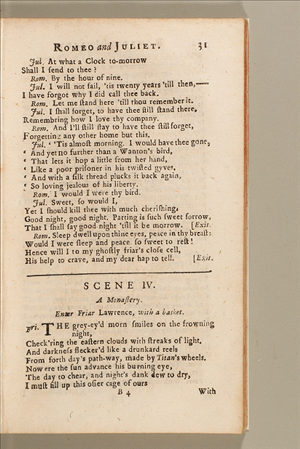 ROMEO and JULIET. 31
Jul. At what a Clock to-morrow
Shall I send to thee?
Rom. By the hour of nine.
Jul. I will not fail, 'tis twenty years 'till then,——
I have forgot why I did call thee back.
Rom. Let me stand here 'till thou remember it.
Jul. I shall forget, to have thee still stand there,
Remembring how I love thy company.
Rom. And I'll still stay to have thee still forget,
Forgetting any other home but this.
Jul. ' 'Tis almost morning. I would have thee gone,
' And yet no further than a Wanton's bird,
' That lets it hop a little from her hand,
' Like a poor prisoner in his twisted gyves,
' And with a silk thread plucks it back again,
' So loving jealous of his liberty.
Rom. I would I were thy bird.
Jul. Sweet, so would I,
Yet I should kill thee with much cherishing.
Good night, good night. Parting is such sweet sorrow,
That I shall say good night 'till it be morrow. [Exit.
Rom. Sleep dwell upon thine eyes, peace in thy breast:
Would I were sleep and peace so sweet to rest!
Hence will I to my ghostly friar's close cell,
His help to crave, and my dear hap to tell. [Exit.
SCENE IV.
A Monastery.
Enter Friar Lawrence, with a basket.
Fri. THE grey-ey'd morn smiles on the frowning
night,
Check'ring the eastern clouds with streaks of light,
And darkness flecker'd like a drunkard reels
From forth day's path-way, made by Titan's wheels.
Now ere the sun advance his burning eye,
The day to chear, and night's dank dew to dry,
I must fill up this osier cage of ours
B 4 With